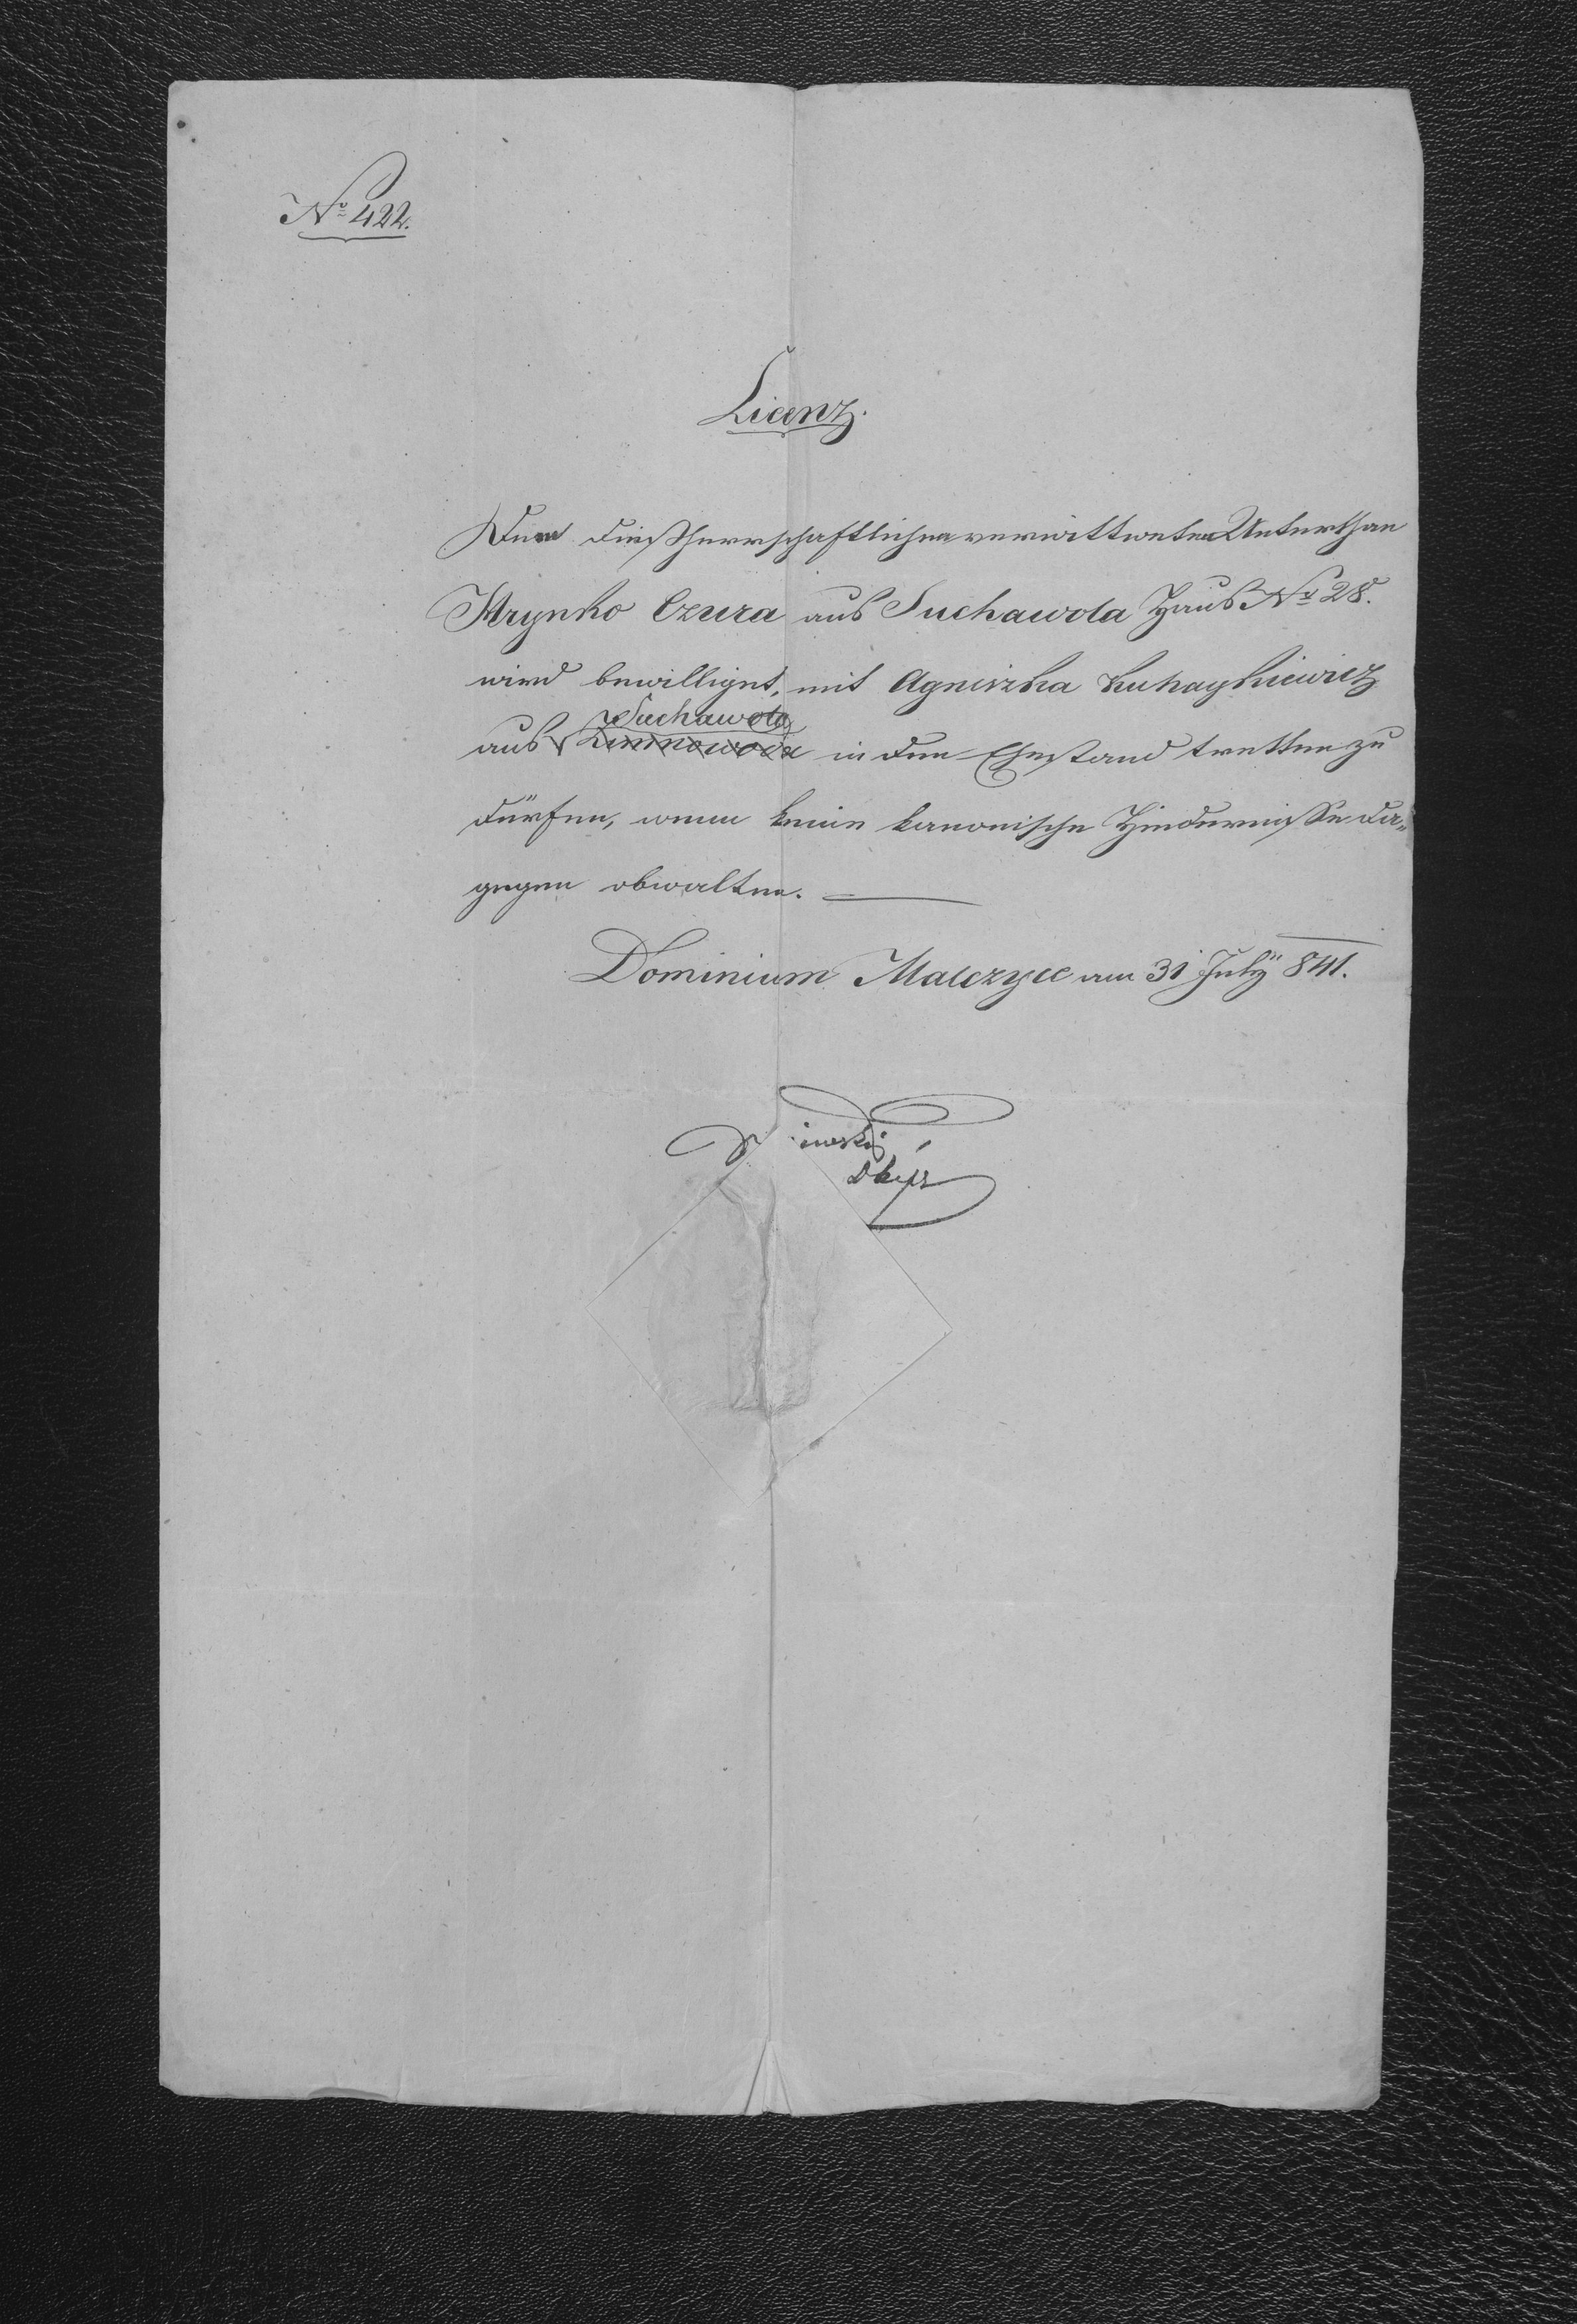 No 422.
Licenz.
Dem diesherrschaftlichen verwittweten Unterthan
Hrynko Czura aus Suchawola Haus No 28.
wird bewilliget, mit Agniszka
Suchawola
aus Zimnowoda in den Ehestand tretten zu
dürfen, wenn keine kanonische Hindernisse da„
gegen obwalten. —
Dominium Malczyce am 31 July 841.